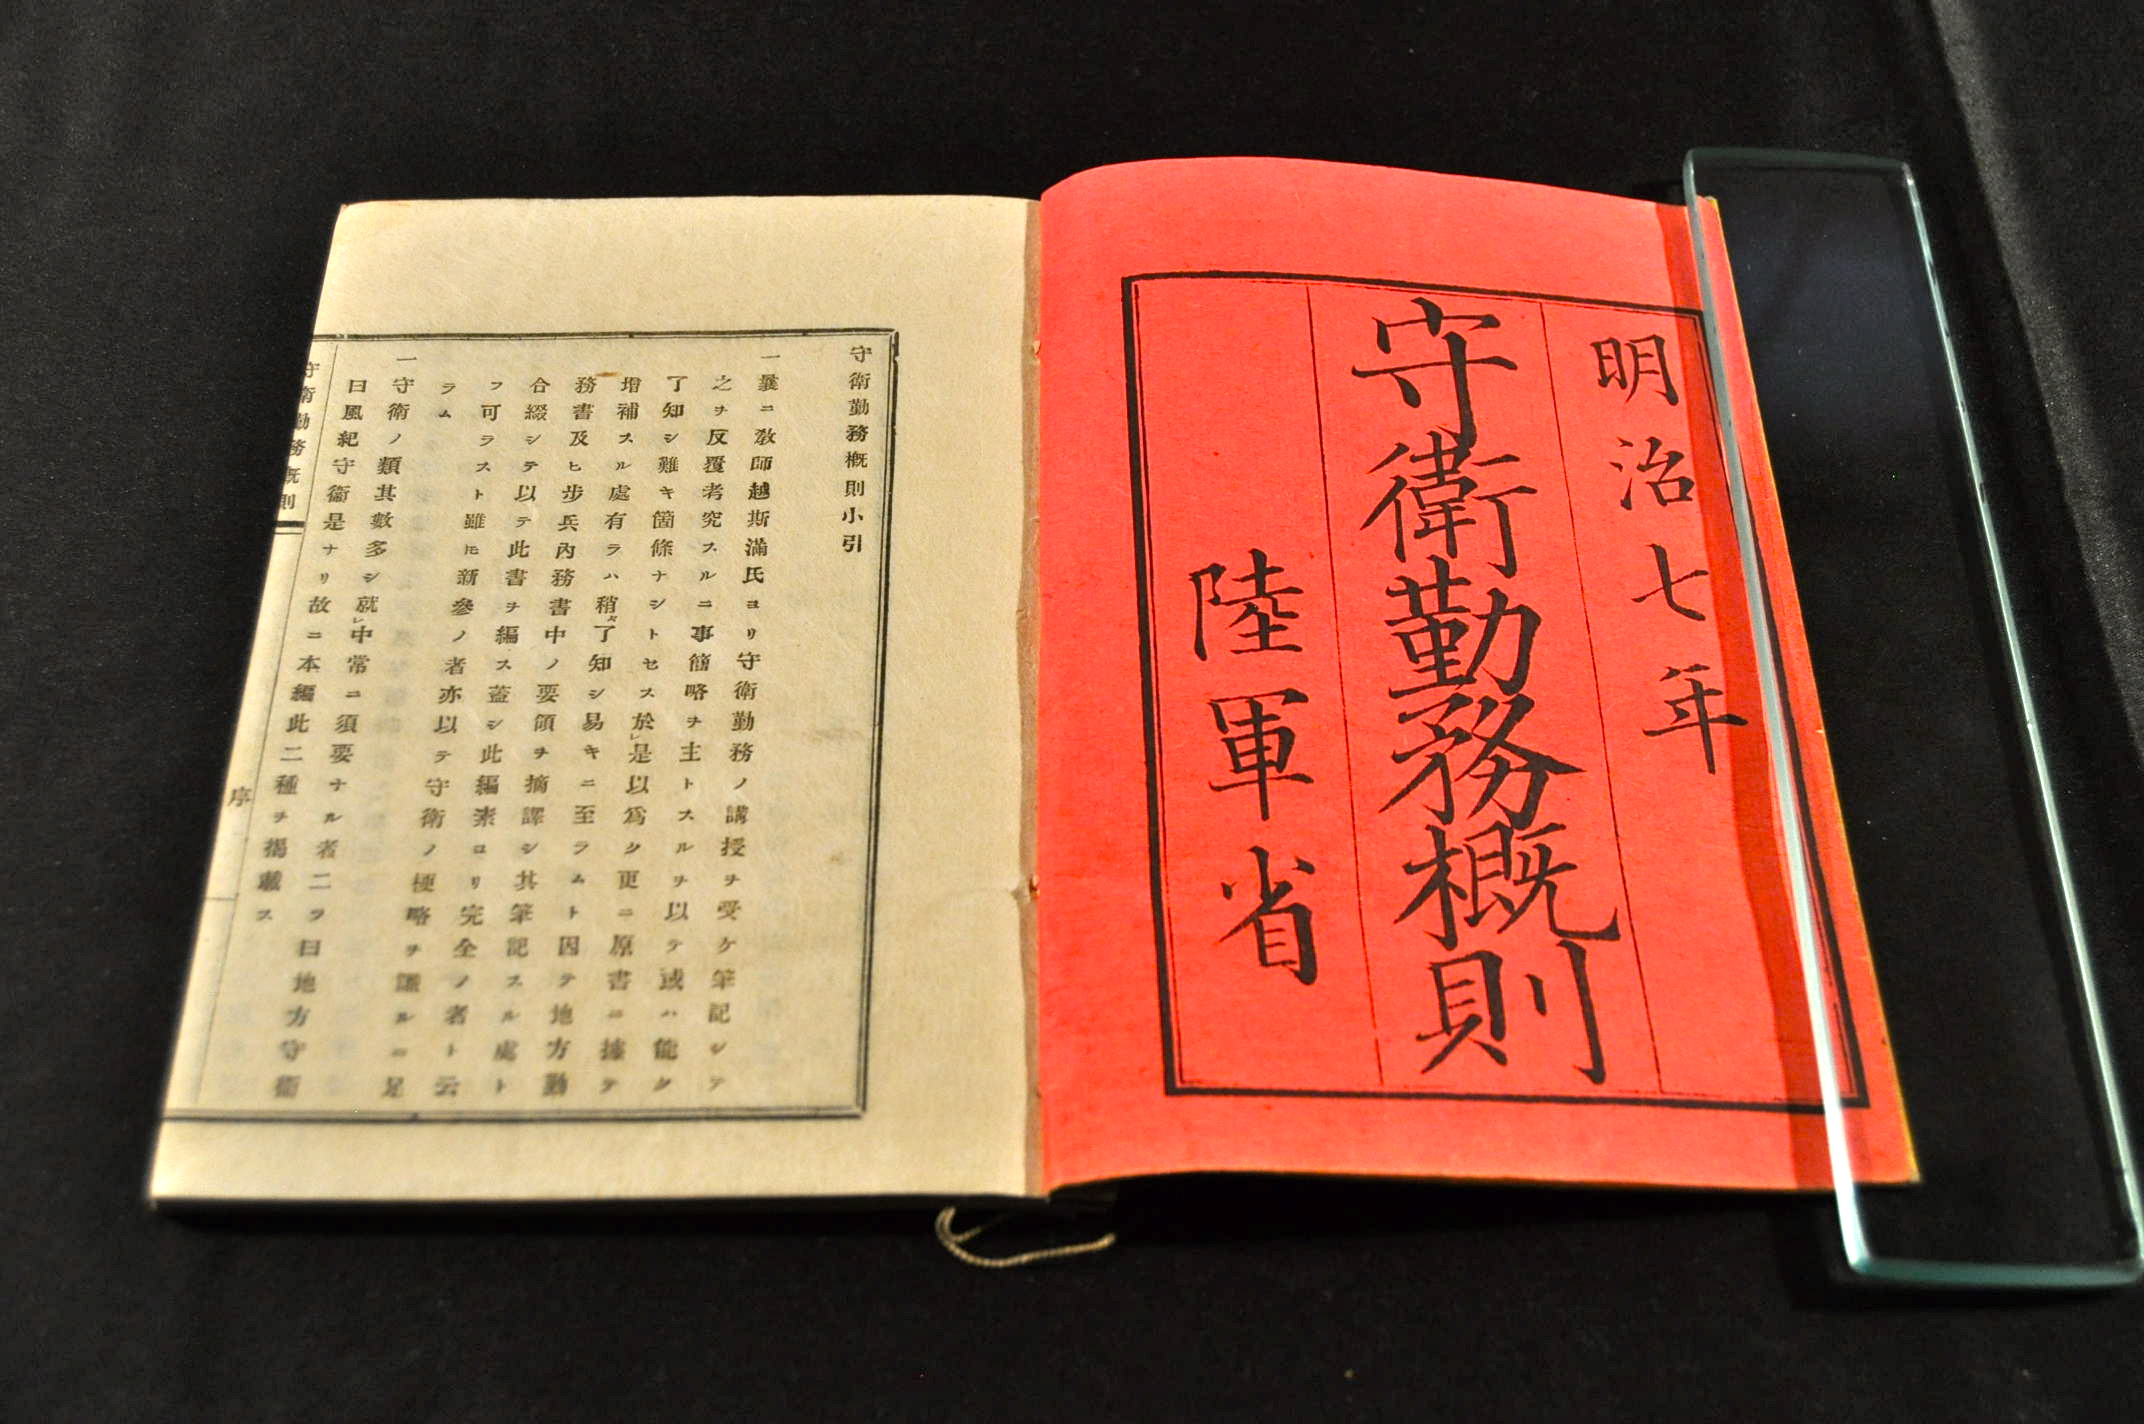 明治七年
守衛勤務概則
陸軍省
守衛勤務概則小引
一曩ニ敎師越斯滿氏ヨリ守衛勤務ノ講授ヲ受ケ筆記シテ
之ヲ反覆考究スルニ事簡略ヲ主トスルヲ以テ或ハ能ク
了知シ難キ箇條ナシトセス於レ是以爲ク更ニ原書ニ據テ
增補スル處有ラハ稍々了知シ易キニ至ラムト因テ地方勤
務書及ヒ步兵內務書中ノ要領ヲ摘譯シ其筆記スル處ト
合綴シテ以テ此書ヲ編ス蓋シ此編素ヨリ完全ノ者ト云
フ可ラスト雖㐂新參ノ者亦以テ守衛ノ梗略ヲ識ルニ足
ラム
一守衛ノ類其數多シ就レ中常ニ須要ナル者二ツ曰地方守衞
曰風紀守衞是ナリ故ニ本編此二種ヲ揭載ス
守衛勤務概則
序